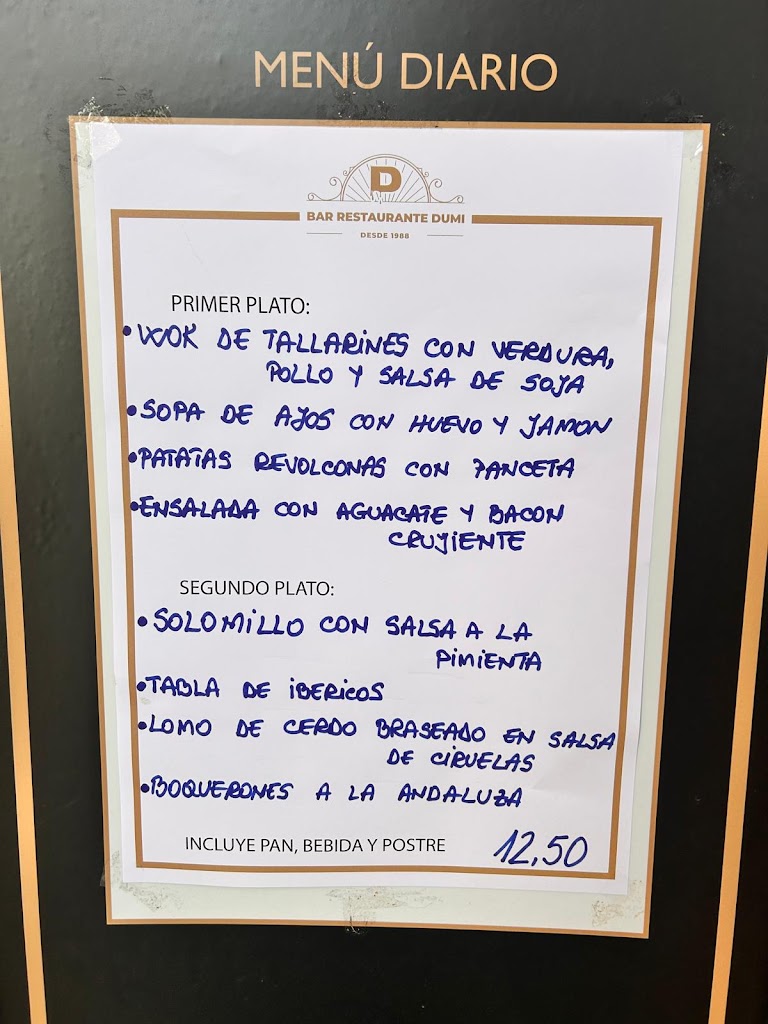 MENÚ DIARIO
D
BAR RESTAURANTE DUMI
DESDE 1988
PRIMER PLATO:
• WOK DE TALLARINES CON VERDURA,
POLLO Y SALSA DE SOJA
• SOPA DE AJOS CON HUEVO Y JAMON
• PATATAS REVOLCONAS CON PANCETA
• ENSALADA CON AGUACATE Y BACON
CRUJIENTE
SEGUNDO PLATO:
• SOLOMILLO CON SALSA A LA
PIMIENTA
• TABLA DE IBERICOS
• LOMO DE CERDO BRASEADO EN SALSA
DE CIRUELAS
• BOQUERONES A LA ANDALUZA
INCLUYE PAN, BEBIDA Y POSTRE 12,50